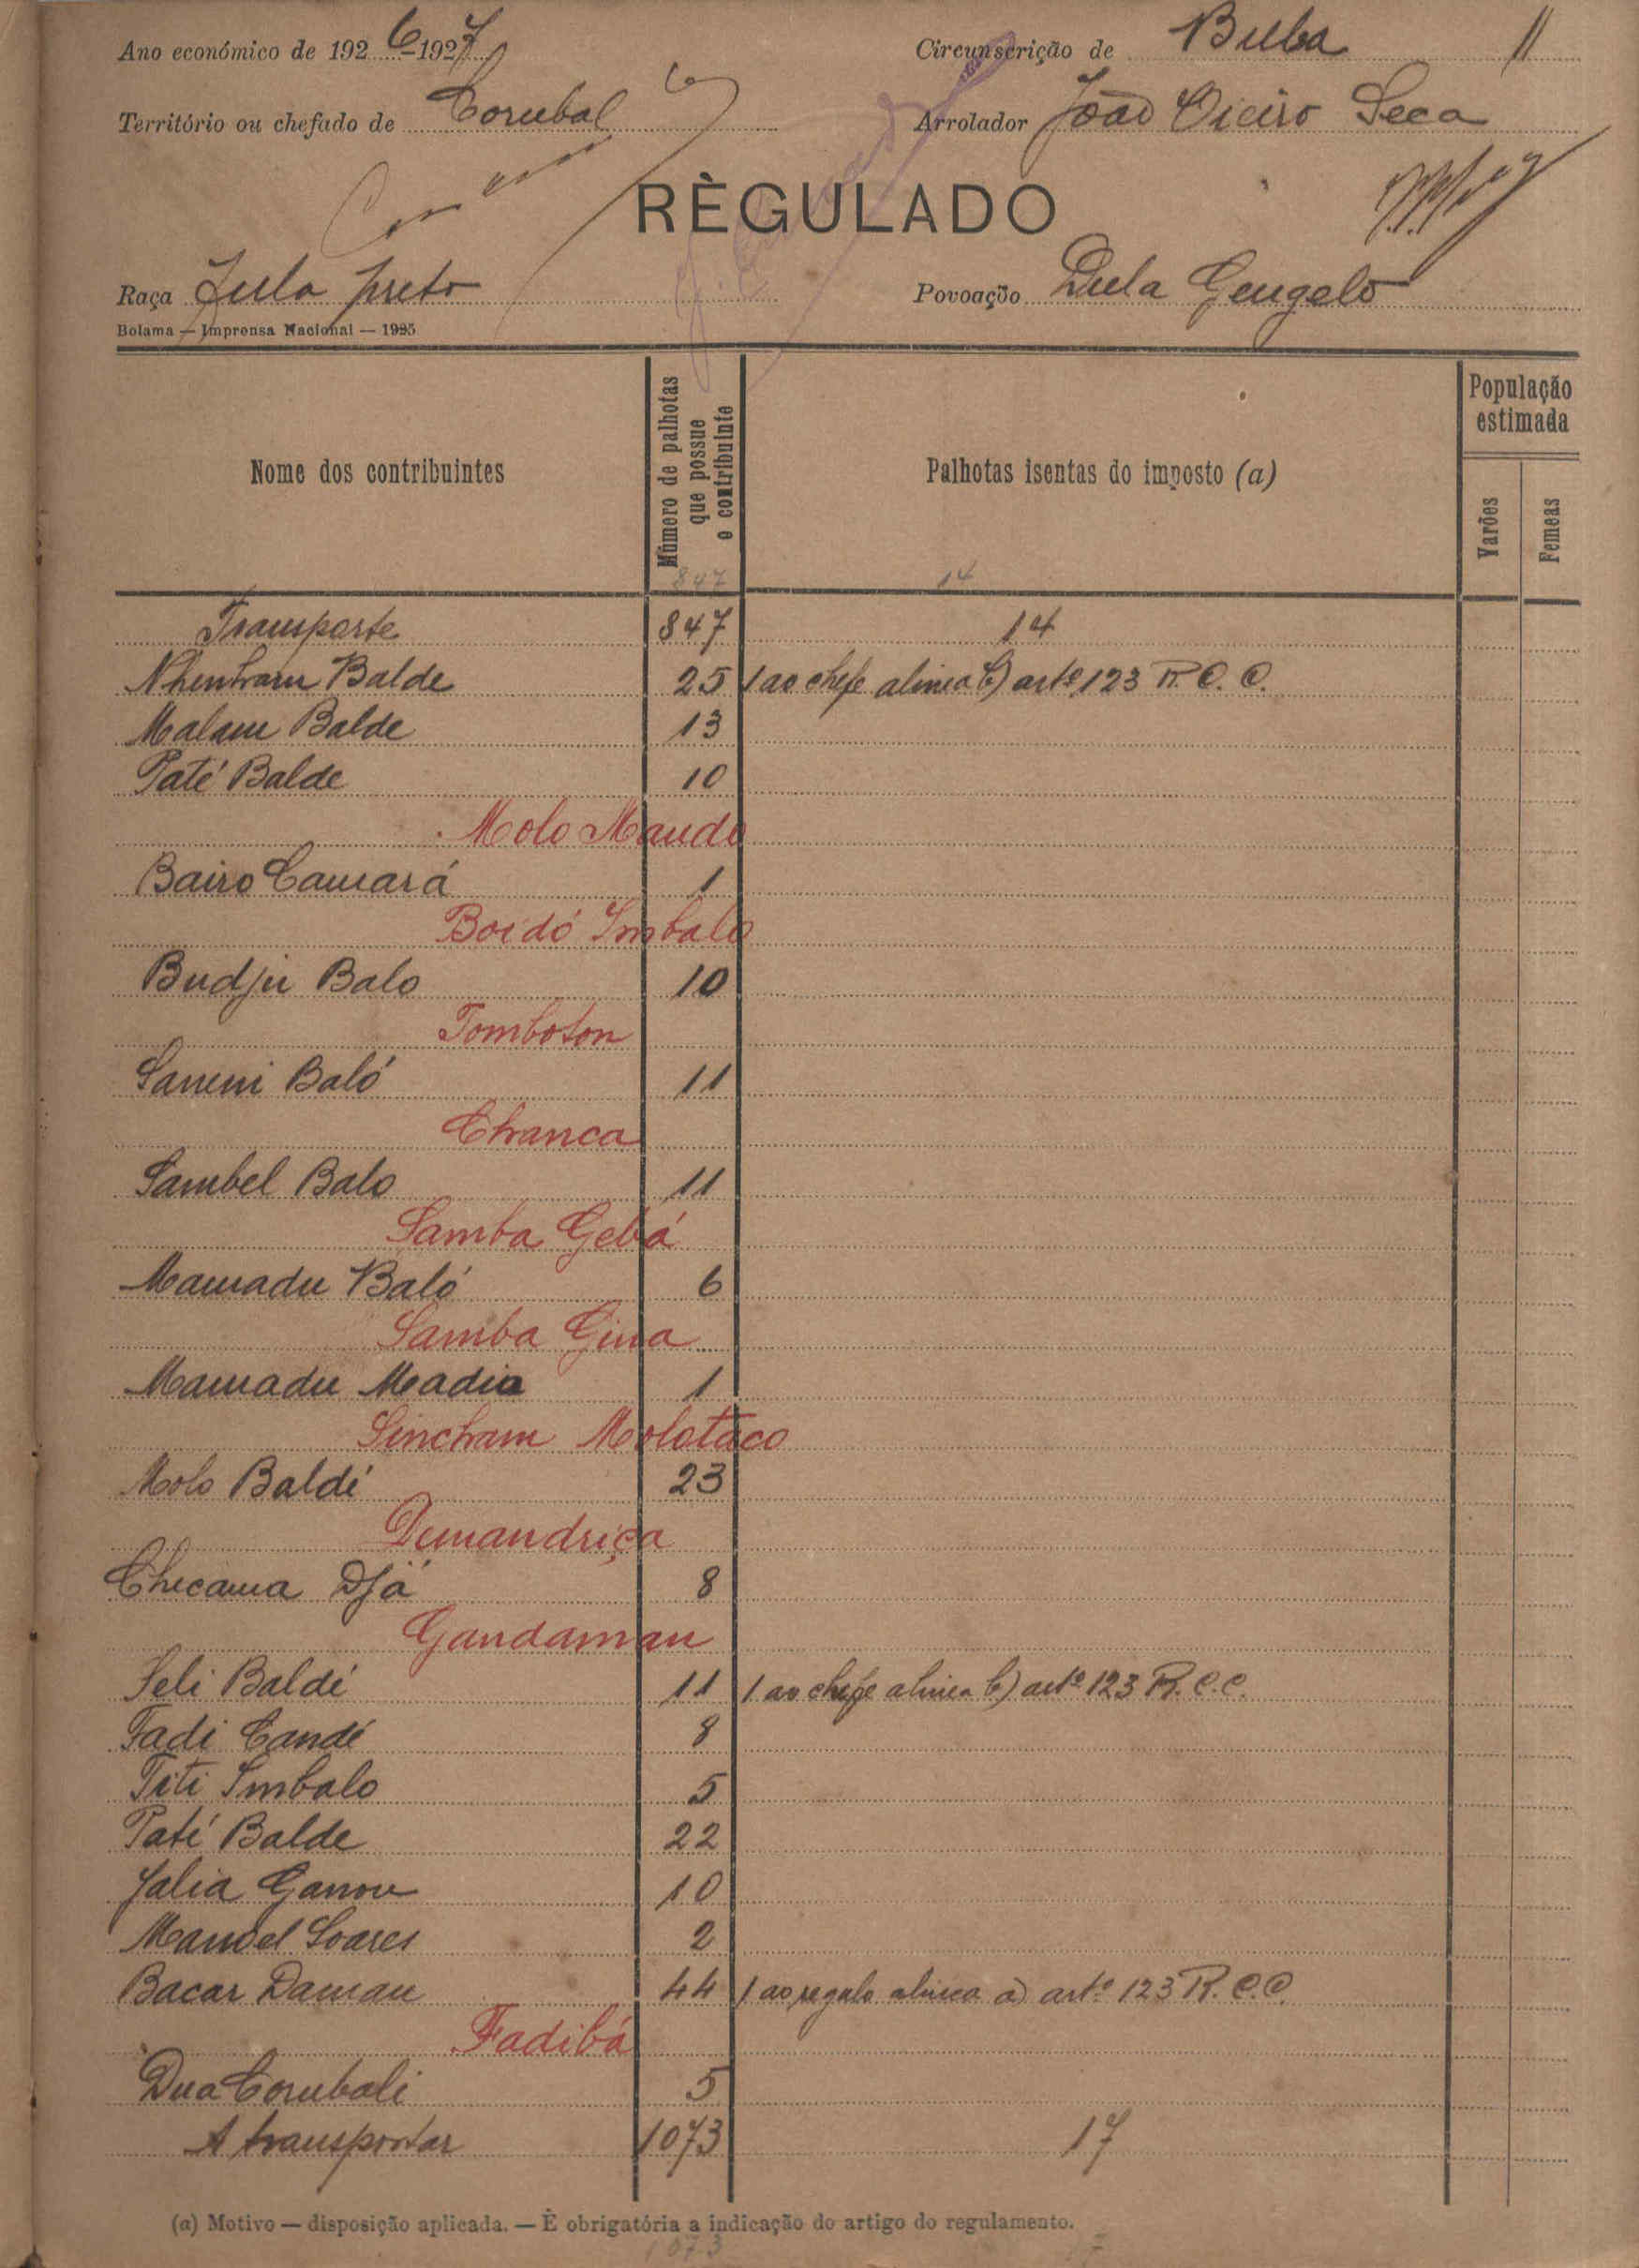 Ano económico de 1926-1927 Circunscrição de Buba 11
Território ou chefado de Corubal Arrolador João Vieira Seca
RÈGULADO
Raça Fula preto Povoação Dula Gengelo
Bolama — Imprensa Nacional — 1925
Nome dos contribuintes Número de palhotas que possue o contribuinte Palhotas isentas do imposto (a) População estimada Varões Femeas
847 14
Transporte 847 14
Nhentram Balde 25 1 ao chefe alinea b) artº 123 R. C. C.
Malam Balde 13
Paté Balde 10
Molo Mando
Bairo Camará 1
Boidó Imbalo
Budju Balo 10
Tomboton
Saneni Baló 11
Chanca
Sambel Balo 11
Samba Gebá
Mamadu Baló 6
Samba Gina
Mamadu Meadia 1
Sincham Molotaco
Molo Baldé 23
Demandriça
Checama Djá 8
Gandaman
Seli Baldé 11 1 ao chefe alinea b) artº 123 R. C. C.
Fadi Candé 8
Titi Imbalo 5
Paté Balde 22
Jalia Ganou 10
Manoel Soares 2
Bacar Daman 44 1 ao regulo alinea a) artº 123 R. C. C.
Fadibá
Dua Corubali 5
A transportar 1073 17
(a) Motivo — disposição aplicada. — È obrigatória a indicação do artigo do regulamento.
1073 17